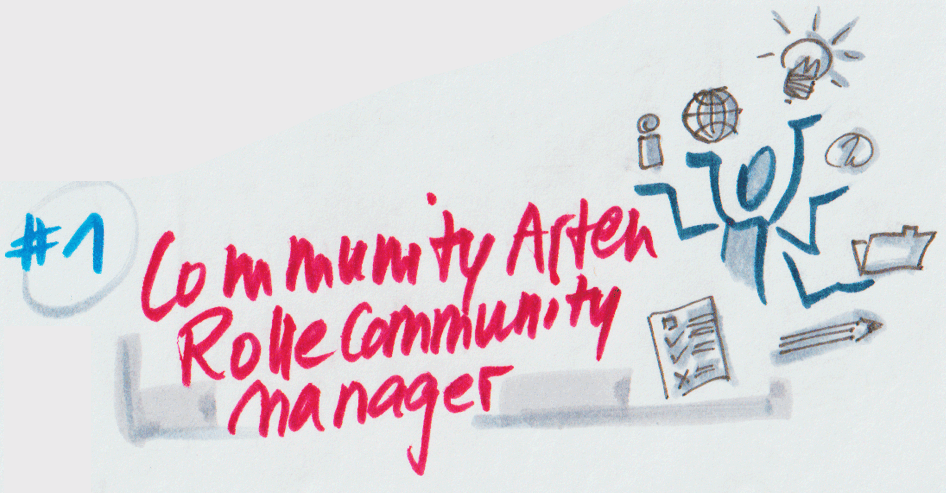 #1
Community Arten
Rolle Community
manager